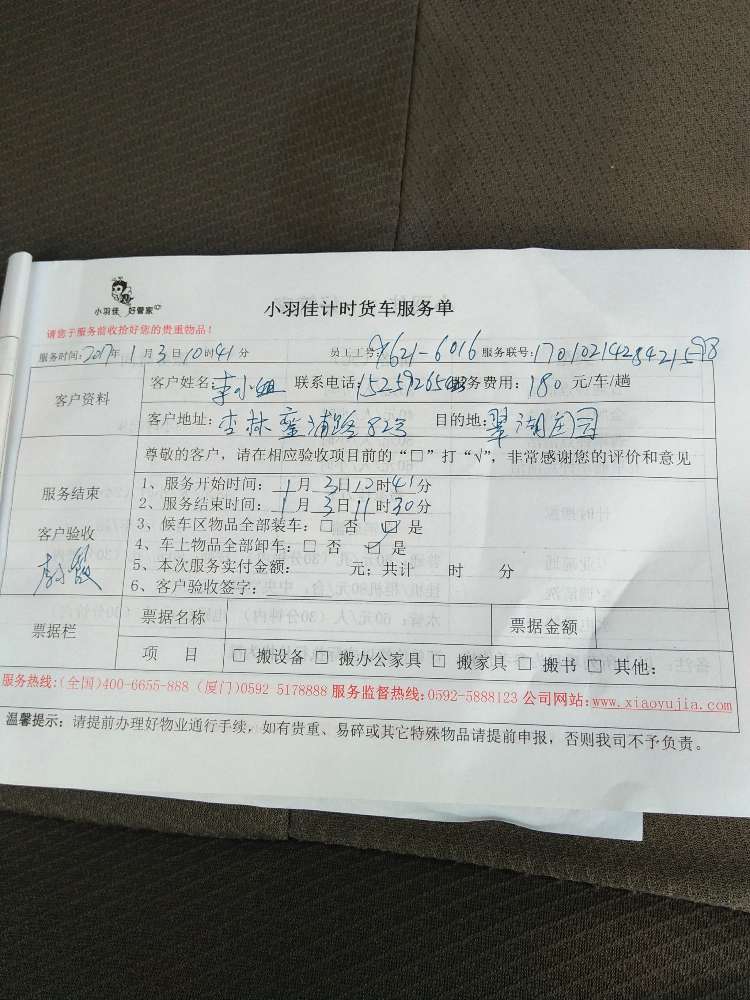 小羽佳 好管家
小羽佳计时货车服务单
请您于服务前收拾好您的贵重物品！
服务时间：2017年 1 月 3 日 10 时 41 分 员工工号：9621-6016 服务联号：170102142842
客户资料
客户姓名： 李小姐 联系电话： 服务费用：180 元/车/趟
客户地址：杏林 浦路82号 目的地：翠湖庄园
尊敬的客户，请在相应验收项目前的“□”打“√”，非常感谢您的评价和意见
服务结束
客户验收
1、服务开始时间： 1 月 3 日 12 时 41 分
2、服务结束时间： 1 月 3 日 11 时 30 分
3、候车区物品全部装车：□ 否 ☑ 是
4、车上物品全部卸车：□ 否 ☑ 是
5、本次服务实付金额： 元；共计 时 分
6、客户验收签字：
票据栏
票据名称 票据金额
项 目 □ 搬设备 □ 搬办公家具 □ 搬家具 □ 搬书 □ 其他：
服务热线:(全国)400-6655-888 (厦门)0592 5178888 服务监督热线:0592-5888123 公司网站:www.xiaoyujia.com
温馨提示：请提前办理好物业通行手续，如有贵重、易碎或其它特殊物品请提前申报，否则我司不予负责。